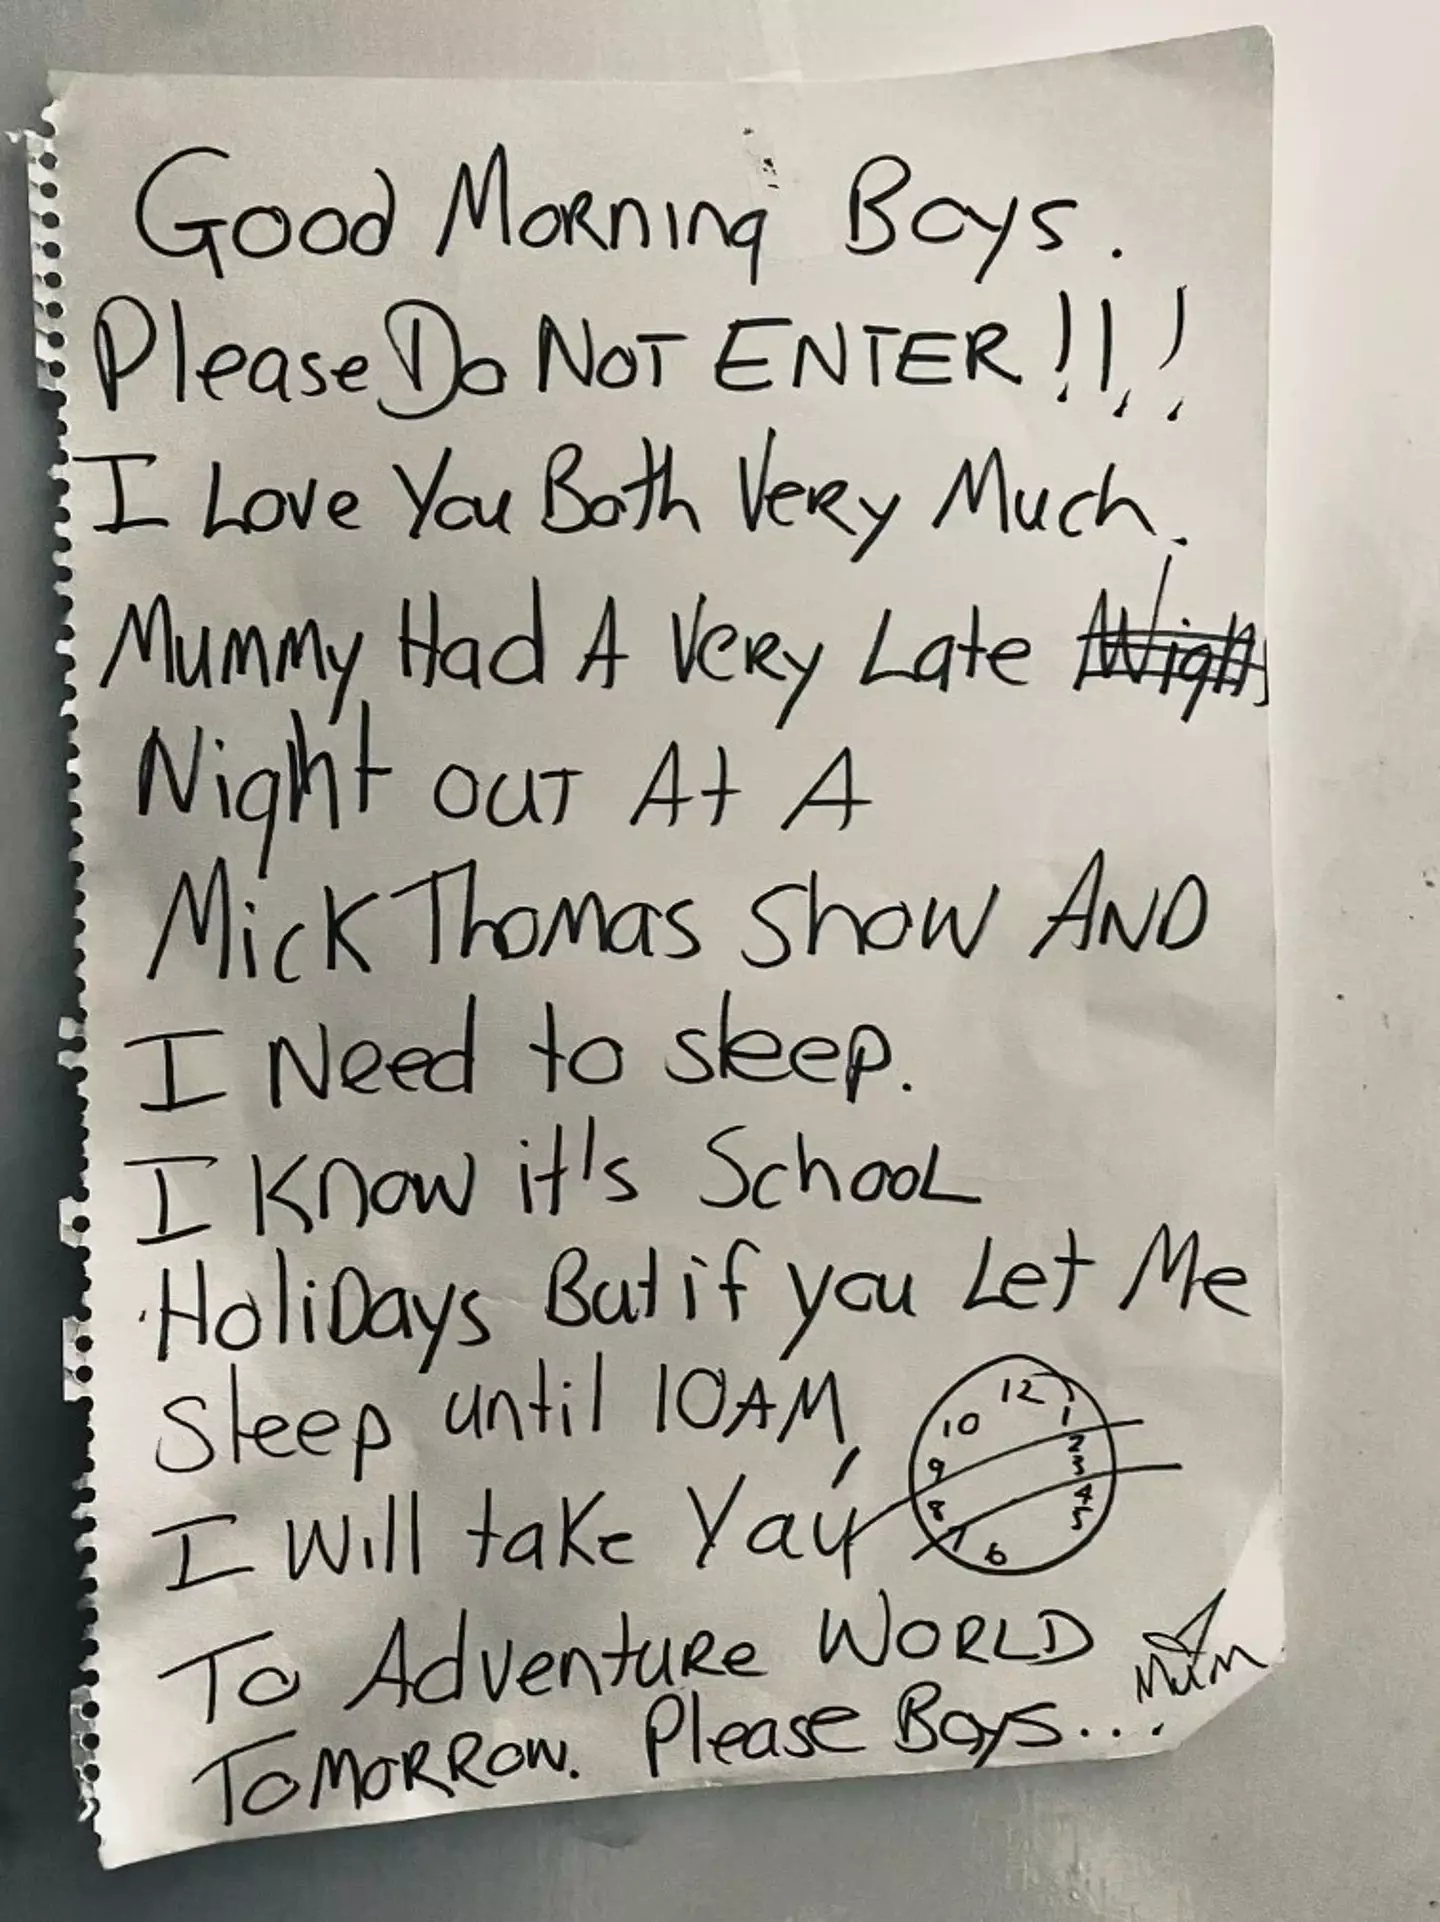 Good Morning Boys.
Please Do NOT ENTER!!!
I Love You Both Very Much.
Mummy Had A Very Late
Night out At A
Mick Thomas Show AND
I Need to sleep.
I know it's School
Holidays But if you Let Me
Sleep until 10AM,
12
1
10
2
9
3
4
8
5
6
I will take You
To Adventure WORLD
Mum
Tomorrow. Please Boys...